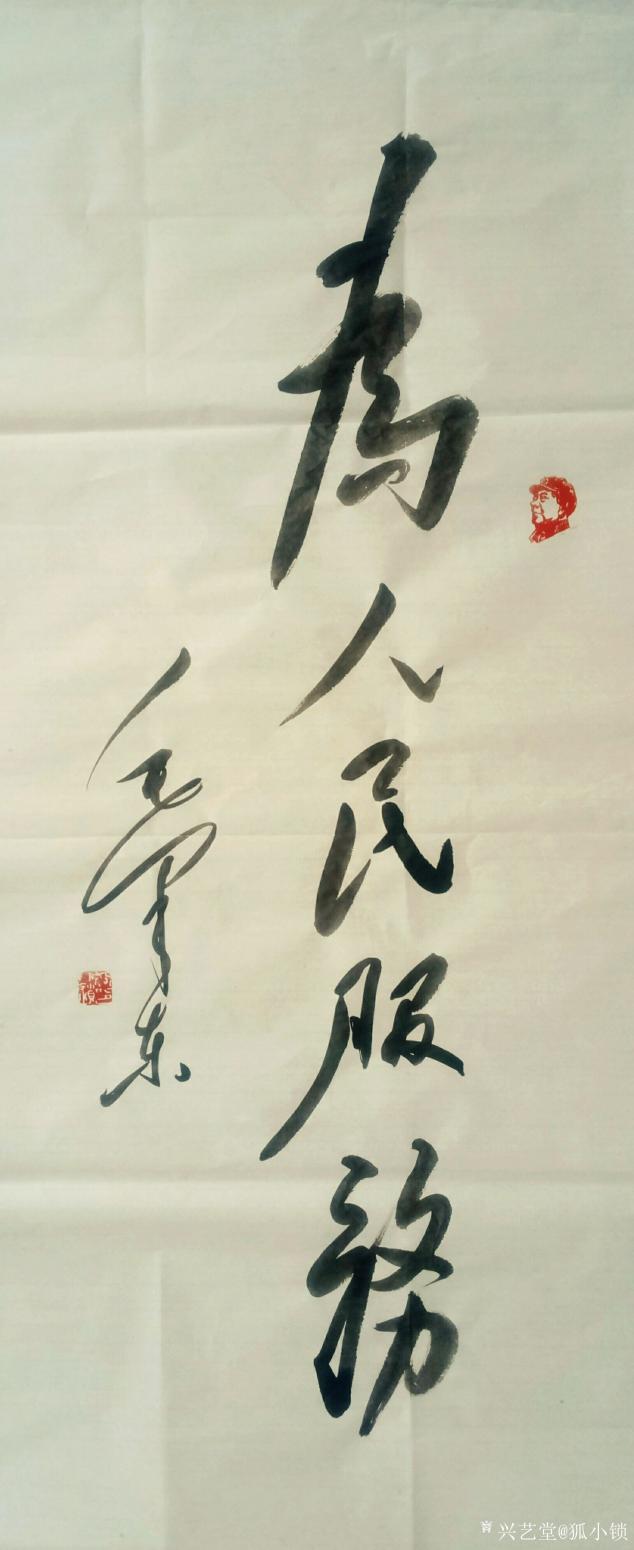 為人民服務
毛泽东
兴艺堂@狐小锁